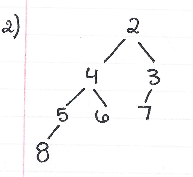 2) 2
4 3
5 6 7
8